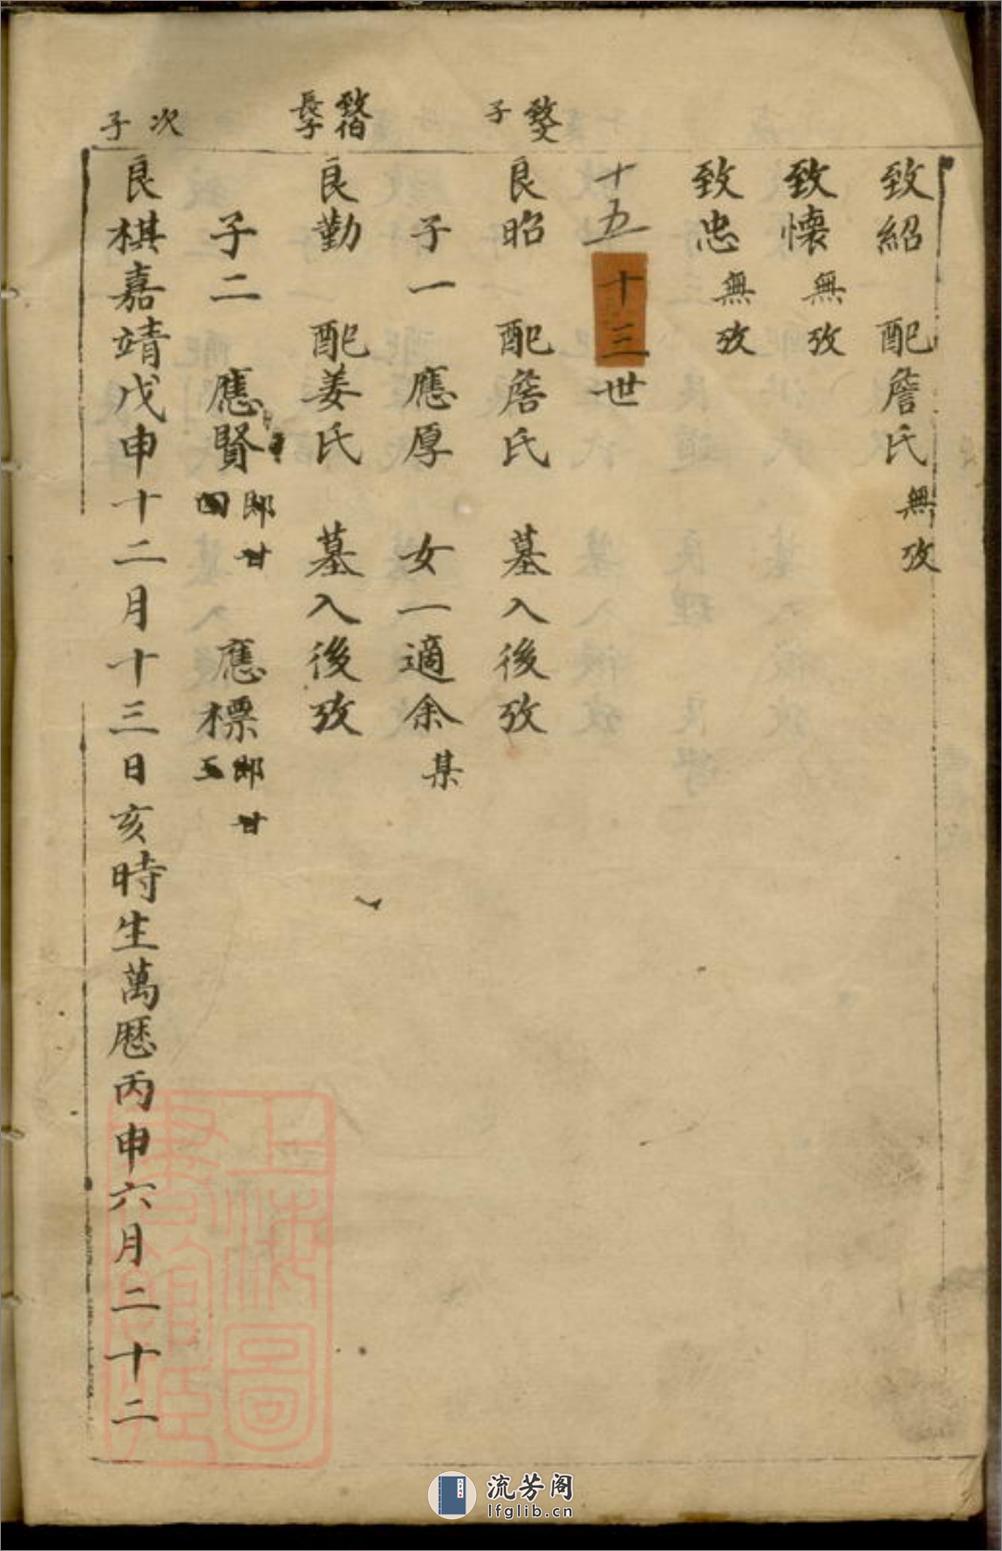 致紹 配詹氏 無攷
致懷 無攷
致忠 無攷
十五 十三世
致文子
良昭 配詹氏 墓入後攷
子一 應厚 女一適余某
致伯長子
良勤 配姜氏 墓入後攷
子二 應賢 應標
次子
良棋嘉靖戊申十二月十三日亥時生萬歷丙申六月二十二
上海圖書館藏
流芳阁
lfglib.cn